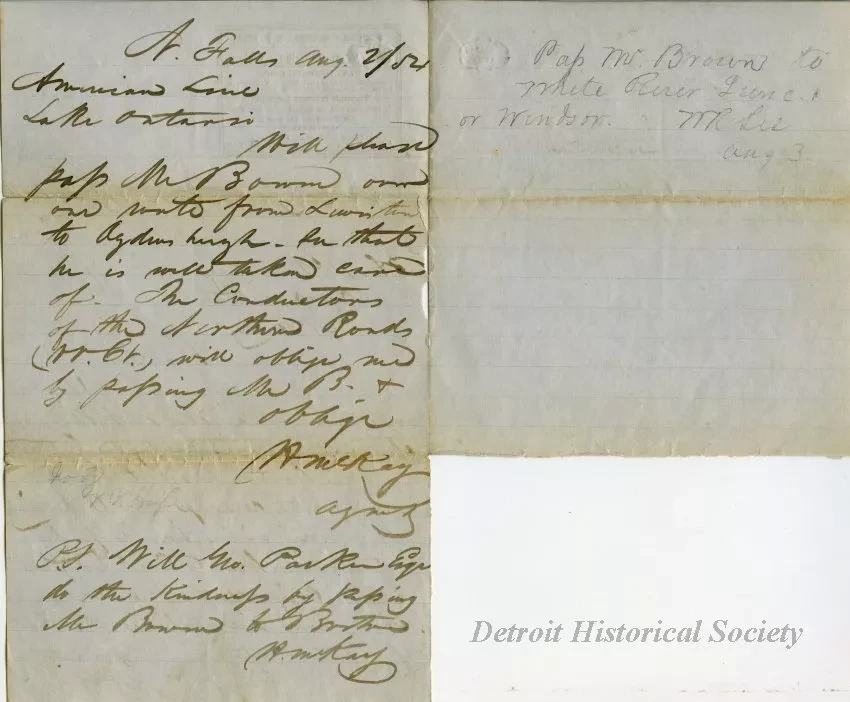 N. Falls Aug. 2/54
American Line
Lake Ontario
Will please
pass Mr Bowne over
our route from Lewiston
to Ogdensburgh - See that
he is well taken care
of. The Conductors
of the Northern Roads
(Vt. Ct.) will oblige me
by passing Mr B. &
oblige
H. McKay
Agent
P.S. Will Geo. Parker Esqr
do the Kindness by passing
Mr Bowne to Boston
H. McKay
Pass Mr. Brown to
White River Junc.
or Windsor. WR Lee
Aug 3
Detroit Historical Society